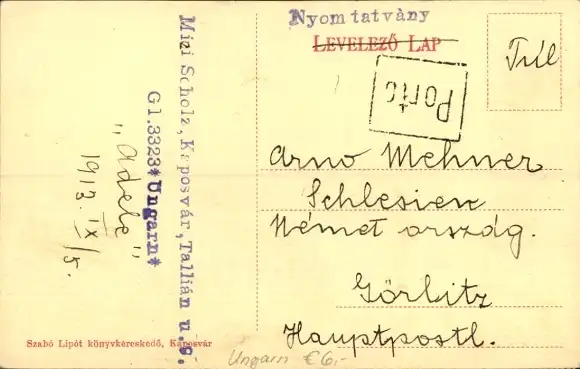 Nyomtatvány
LEVELEZŐ LAP
Túl
Porto
Arno Mehner
Schlesien
Német ország.
Görlitz
Hauptpostl.
Mizi Scholz, Kaposvár, Tallián u.6.
Gl.3323*Ungarn*
"Adele"
1913. IX/5.
Szabó Lipót könyvkereskedő, Kaposvár
Ungarn €6,-